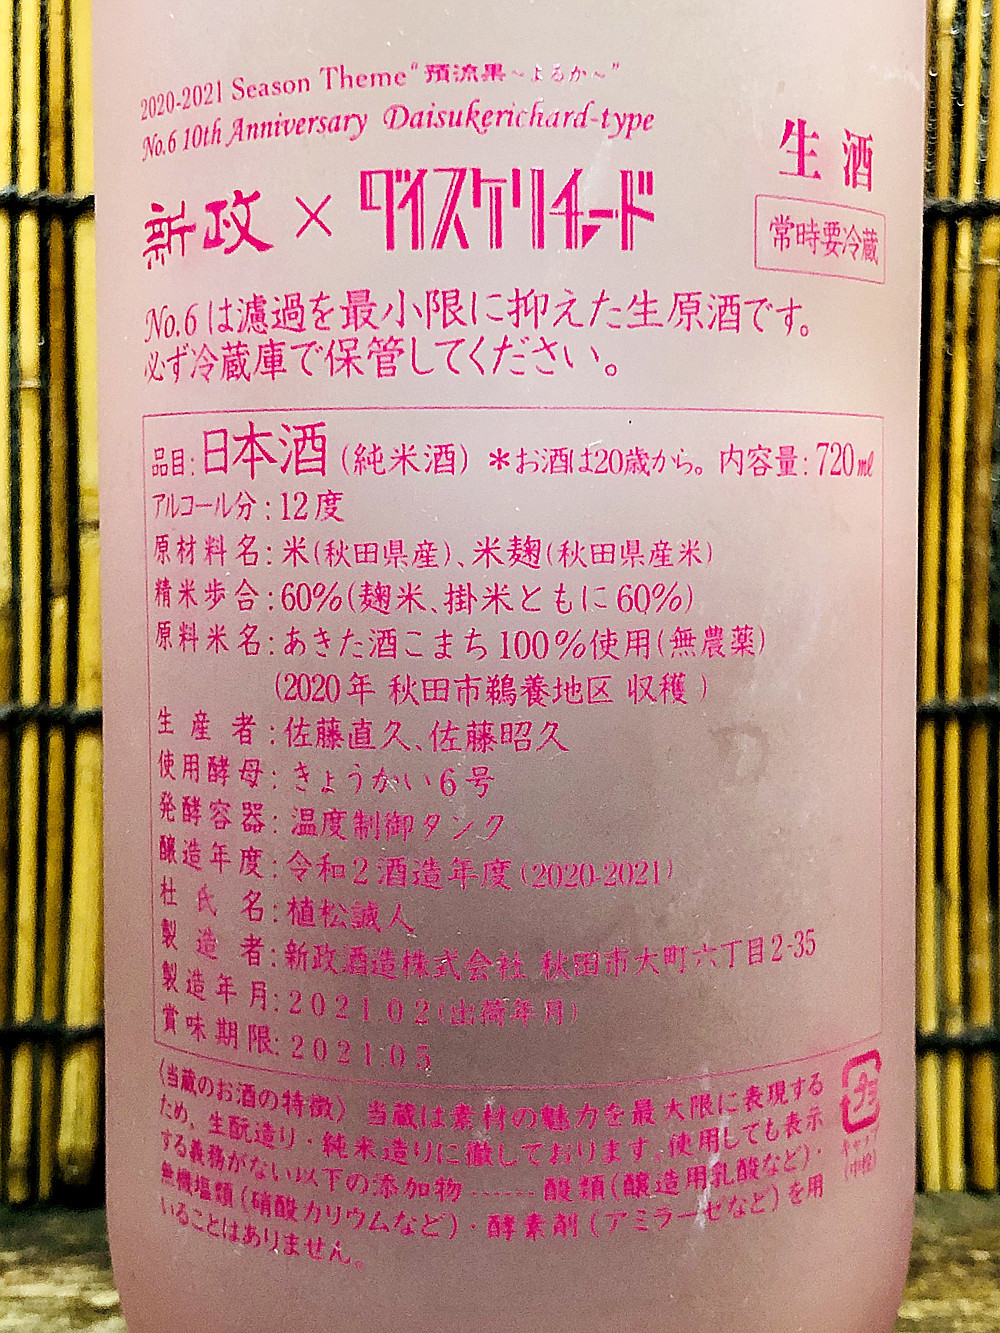 2020-2021 Season Theme “預流果～よるか～”
No.6 10th Anniversary Daisukerichard-type
新政×ダイスケリチャード
生酒
常時要冷蔵
No.6は濾過を最小限に抑えた生原酒です。
必ず冷蔵庫で保管してください。
品目:日本酒(純米酒) *お酒は20歳から。 内容量:720㎖
アルコール分:12度
原材料名:米(秋田県産)、米麹(秋田県産米)
精米歩合:60%(麹米、掛米ともに60%)
原料米名:あきた酒こまち100%使用(無農薬)
(2020年 秋田市鵜養地区 収穫)
生産者:佐藤直久、佐藤昭久
使用酵母:きょうかい6号
発酵容器:温度制御タンク
醸造年度:令和2酒造年度(2020-2021)
杜氏名:植松誠人
製造者:新政酒造株式会社 秋田市大町六丁目2-35
製造年月:2021.02(出荷年月)
賞味期限:2021.05
〈当蔵のお酒の特徴〉 当蔵は素材の魅力を最大限に表現する
ため、生酛造り・純米造りに徹しております。使用しても表示
する義務がない以下の添加物……酸類(醸造用乳酸など)・
無機塩類(硝酸カリウムなど)・酵素剤(アミラーゼなど)を用
いることはありません。
プラ
キャップ
(中栓)